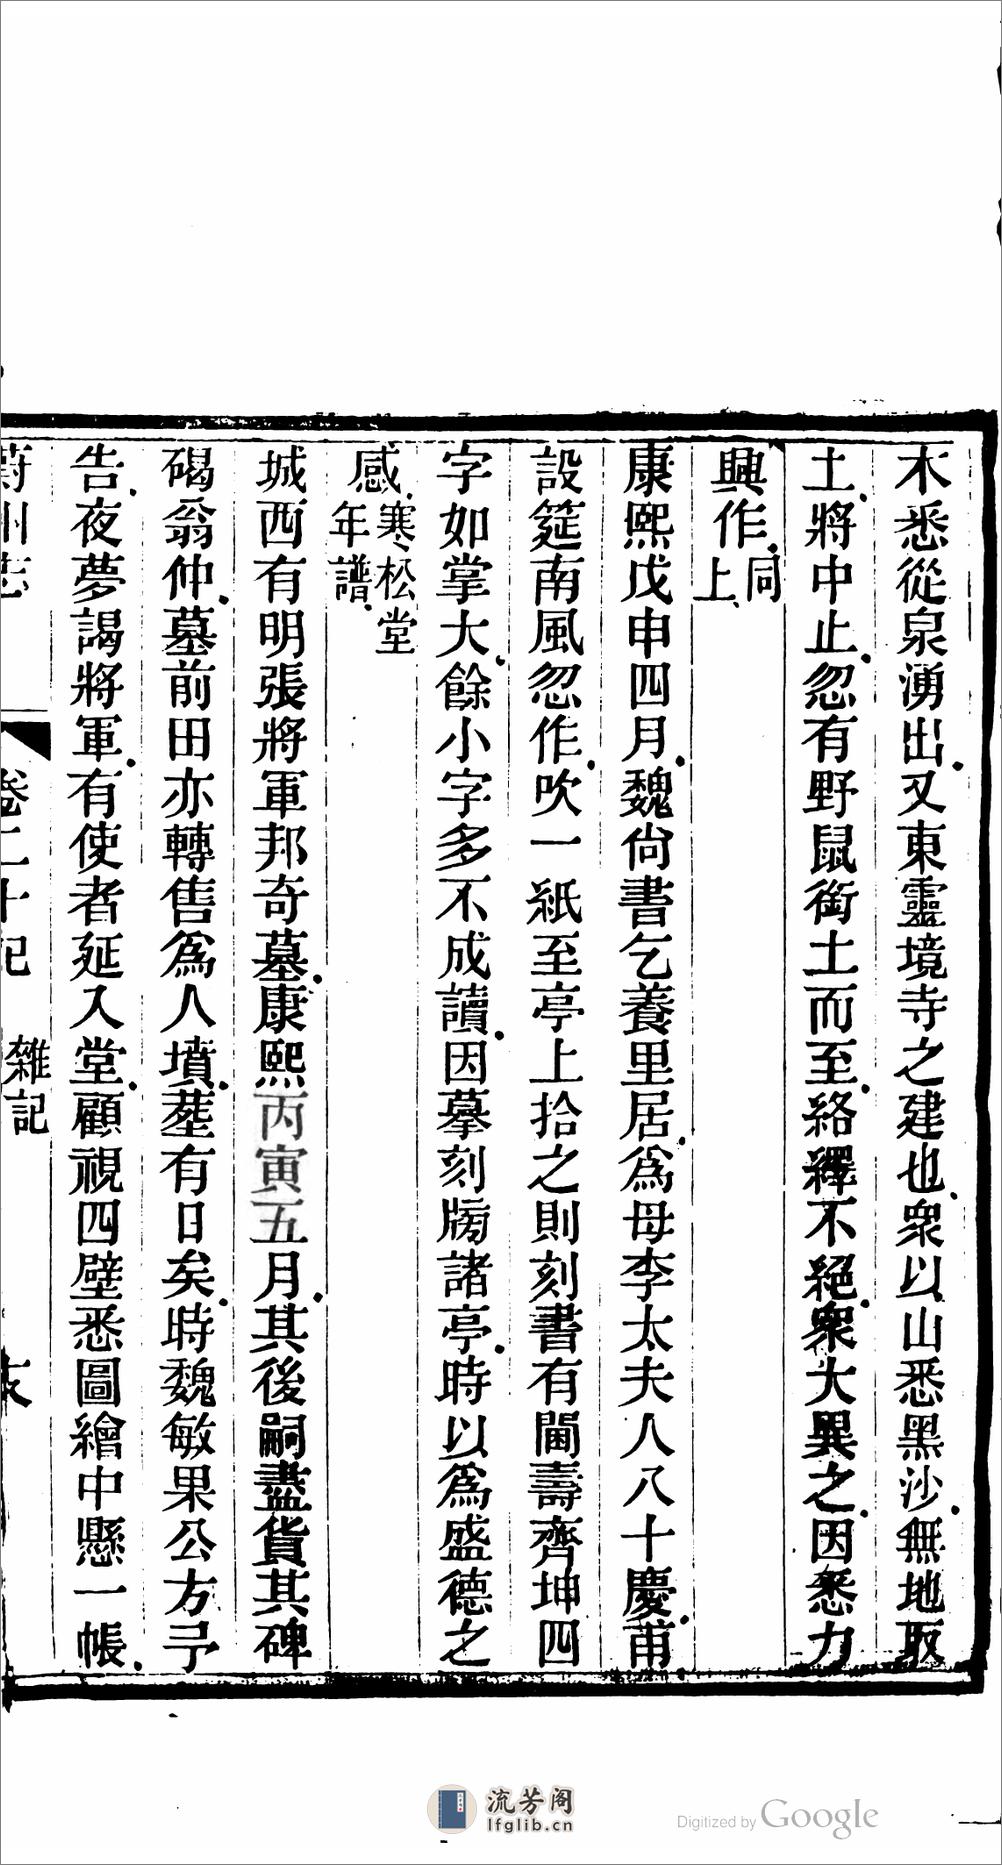 木悉從泉湧出又東靈境寺之建也衆以山悉黑沙無地取
土將中止忽有野鼠銜土而至絡繹不絕衆大異之因悉力
興作同上
康熙戊申四月魏尙書乞養里居爲母李太夫人八十慶甫
設筵南風忽作吹一紙至亭上拾之則刻書有閫壽齊坤四
字如掌大餘小字多不成讀因摹刻牓諸亭時以爲盛德之
感寒松堂年譜
城西有明張將軍邦奇墓康熙丙寅五月其後嗣盡貨其碑
碣翁仲墓前田亦轉售爲人墳塟有日矣時魏敏果公方予
告夜夢謁將軍有使者延入堂顧視四壁悉圖繪中懸一帳
蔚州志 卷二十記 雜記
流芳阁
lfglib.cn
Digitized by Google